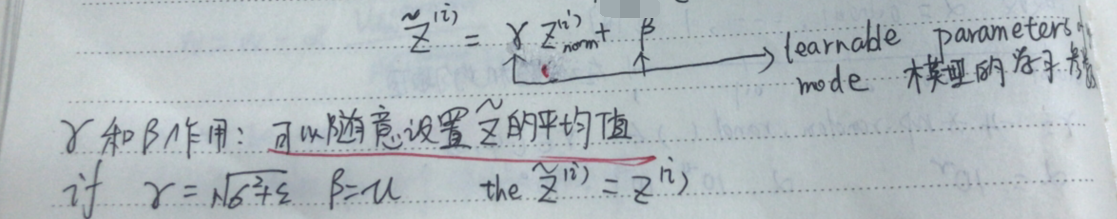 z̃⁽ⁱ⁾ = γ z⁽ⁱ⁾norm + β
learnable parameters
mode 模型的学习参
γ和β作用: 可以随意设置z̃的平均值
if γ = √σ²+ε β=u the z̃⁽ⁱ⁾ = z⁽ⁱ⁾